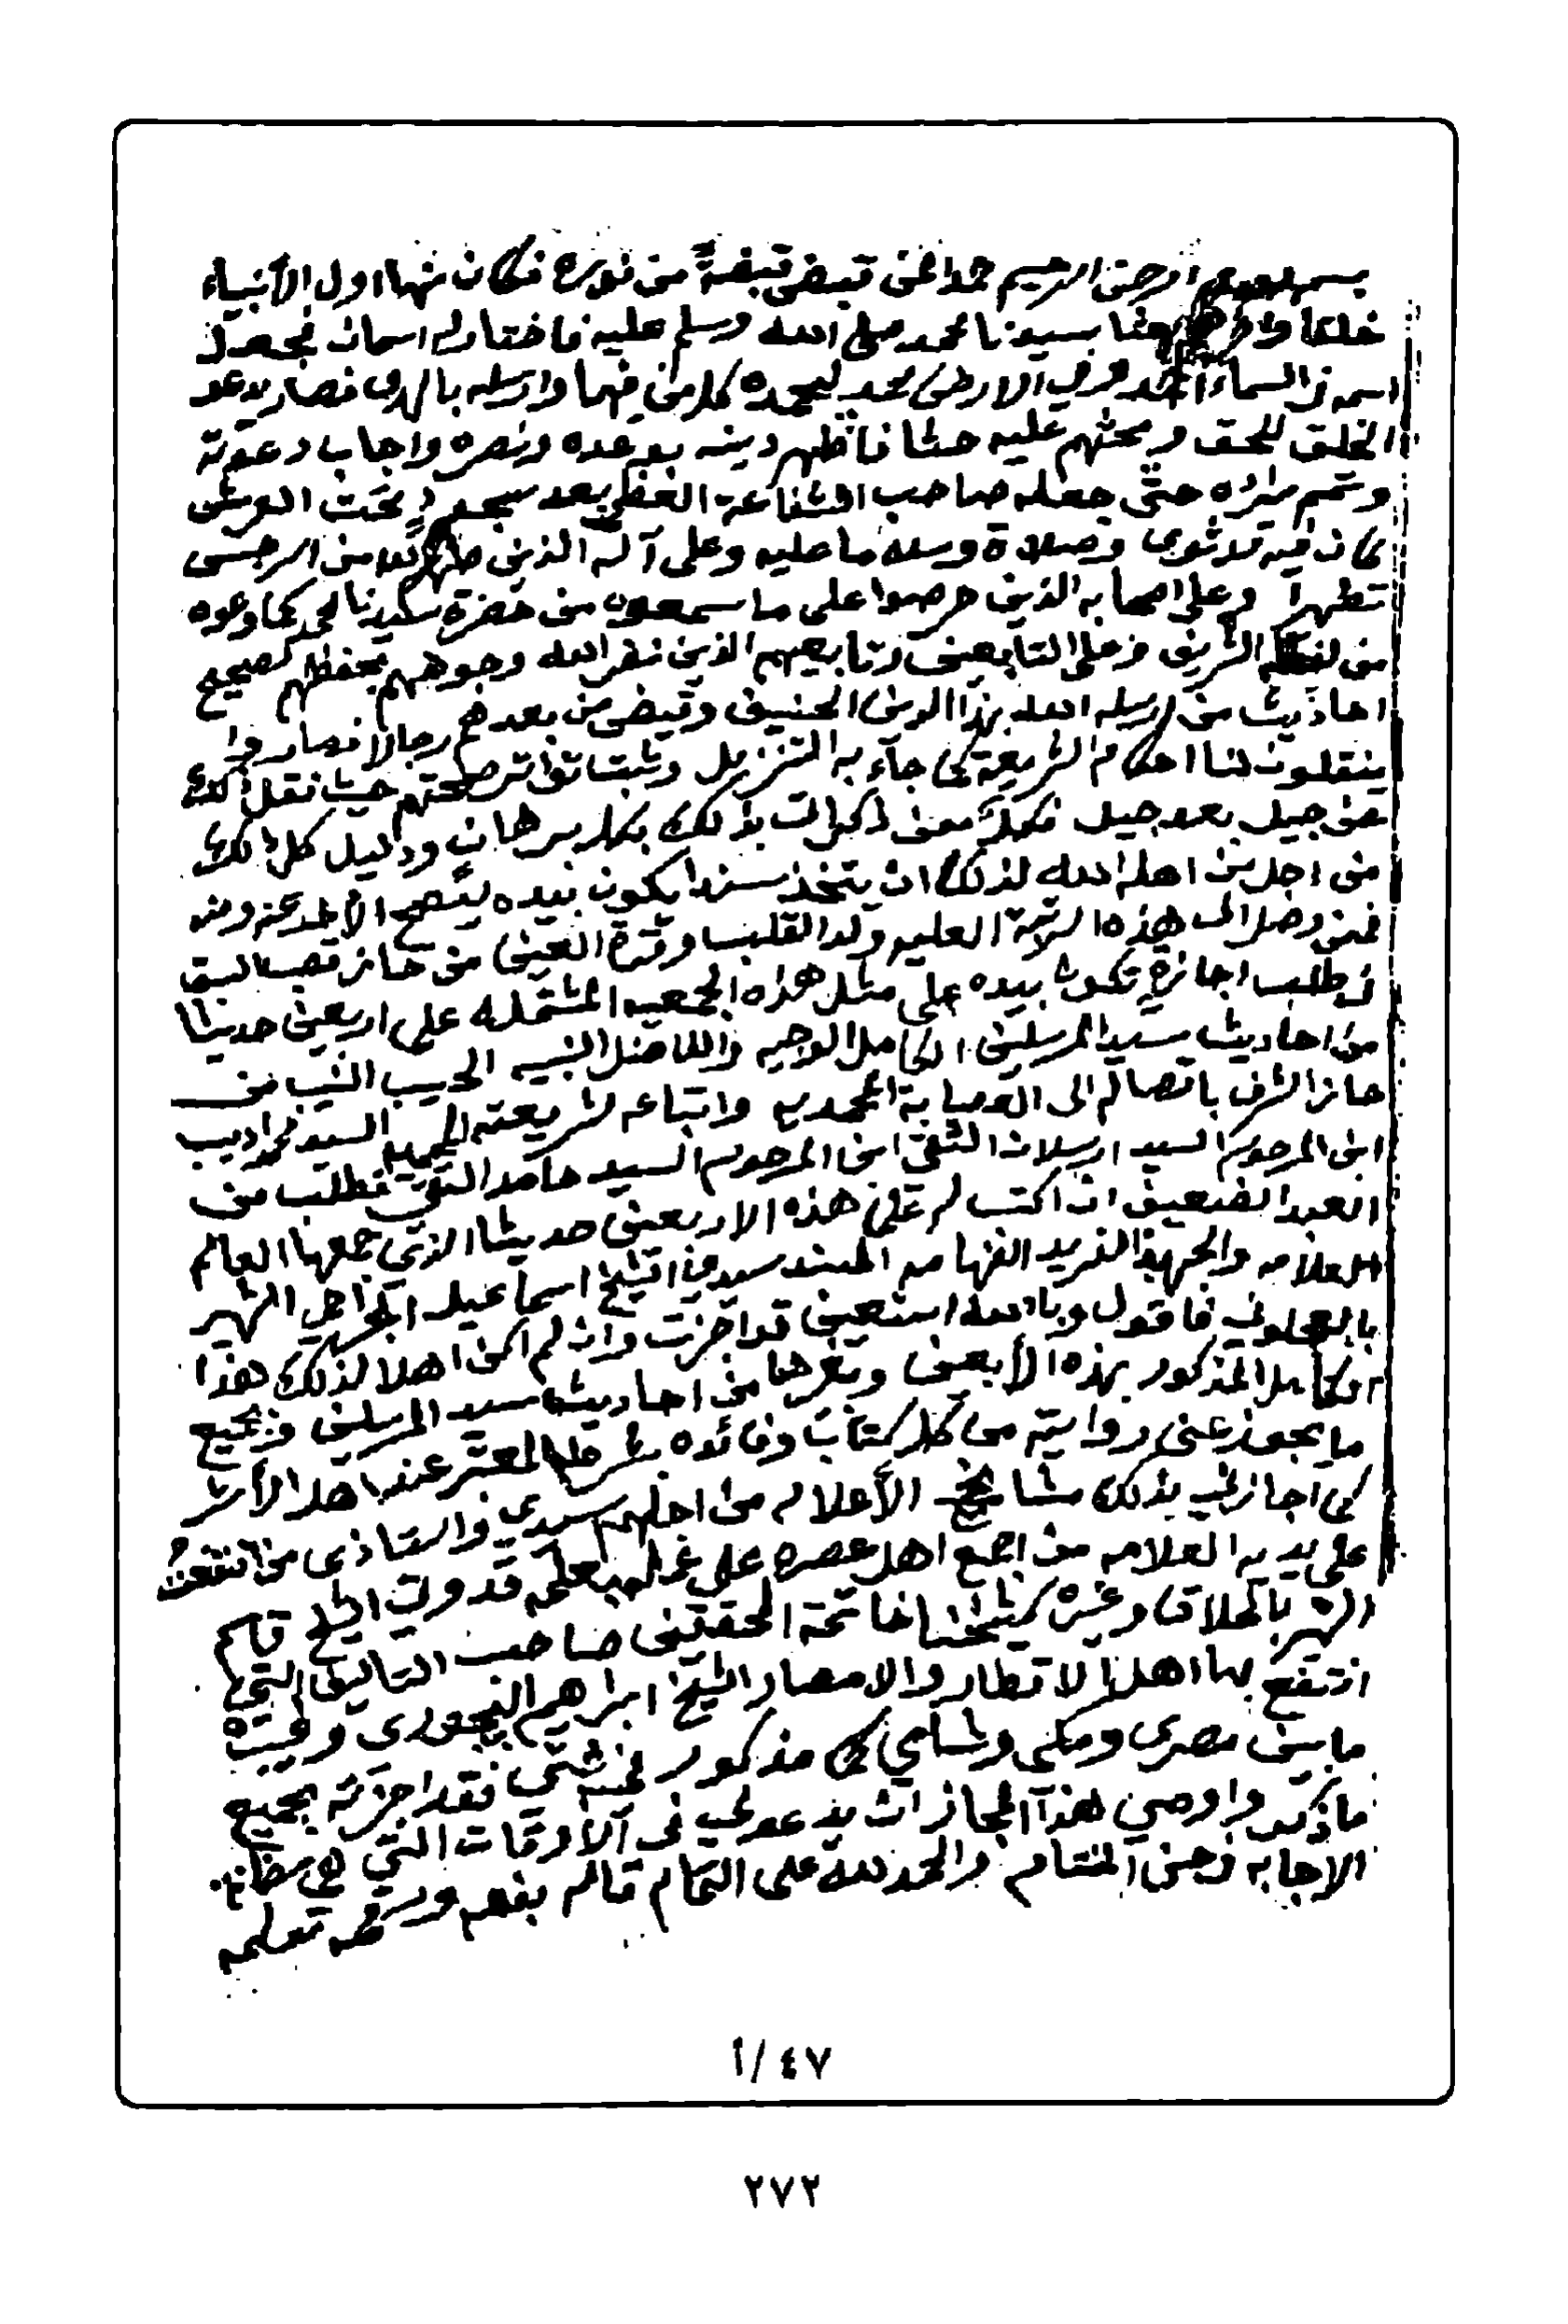 بسم الله الرحمن الرحيم حمدا لمن قبض قبضةً من نوره فكان منها اول الأنبياء
خلقا بعثا سيدنا محمد صلى الله وسلم عليه فاختار له اسمان فجعل
اسمه في السماء احمد وفي الارض محمد ليحمده كل من فيها وارسله بالهدى فصار يدعو
الخلق للحق ويحثهم عليه حثا فأظهر دينه بوعده ونصره واجاب دعوته
وتمم مراده حتى جعله صاحب الشفاعة العظمى بعد سجود تحت العرش
كان فيه وصلاة وسلاما عليه وعلى آله الذين من الرجس
تطهيرا وعلى اصحابه الذين حرصوا على ما سمعوه من حضرة سيدنا محمد كما وعوه
من الشريف وعلى التابعين وتابعيهم الذين نضر الله وجوههم بحفظهم لصحيح
احاديث من ارسله الله بهذا الدين الحنيف وقيض من بعدهم رجالا فصاروا
ينقلون لنا احكام الشريعة كما جاء به التنزيل وثبت تواتر صحتهم حيث نقل ذلك
عن جيل بعد جيل بذلك بكل برهان ودليل كل ذلك
من اجل من اهله الله لذلك ان يتخذ سندا يكون بيده
فمن وصل الى هذه الرتبة العليه ولد القلب وقرة العين من حاز قصب السبق
في طلب اجازة تكون بيده على مثل هذه الجمعيه المشتمله على اربعين حديثا
من احاديث سيد المرسلين الكامل الوجيه والفاضل النبيه الحسيب النسيب من
حاز الشرف باتصاله الى المحمديه واتباعه لشريعته السيد محمد اديب
ابن المرحوم السيد ارسلان التقي ابن المرحوم السيد حامد التقي فطلب من
العبد الضعيف ان اكتب له على هذه الاربعين حديثا الذي جمعها العالم
العلامه والجهبذ الفريد الفهامه المسند سيدي الشيخ اسماعيل الجراحي الشهير
بالعجلوني فاقول وبالله استعين قد اجزت وان لم اكن اهلا لذلك هذا
الكامل المذكور بهذه الأبعين وبغيرها من احاديث سيد المرسلين وبجميع
ما يجوز عني روايته من كل كتاب وفائده بشرطه المعتبر عند اهل الأثر
كما اجازني بذلك مشايخ الأعلام من اجلهم سيدي واستاذى من انتفعت
على يديه العلامه من اجمع اهل عصره على قدوتي الشيخ قاسم
الشهير بالحلاق وغيره كشيخنا خاتمة المحققين صاحب التآليف التي
انتفع بها اهل الاقطار والامصار الشيخ ابراهيم البيجوري وغيره
ما بين مصرى ومكي وشامي كما مذكور فقد اجزته بجميع
ما ذكر واوصي هذا المجاز ان يدعو لي في الاوقات التي هي مظان
الاجابه وحسن الختام والحمد لله على التمام قاله بفمه ورقمه بقلمه
٤٧/أ
٢٧٢